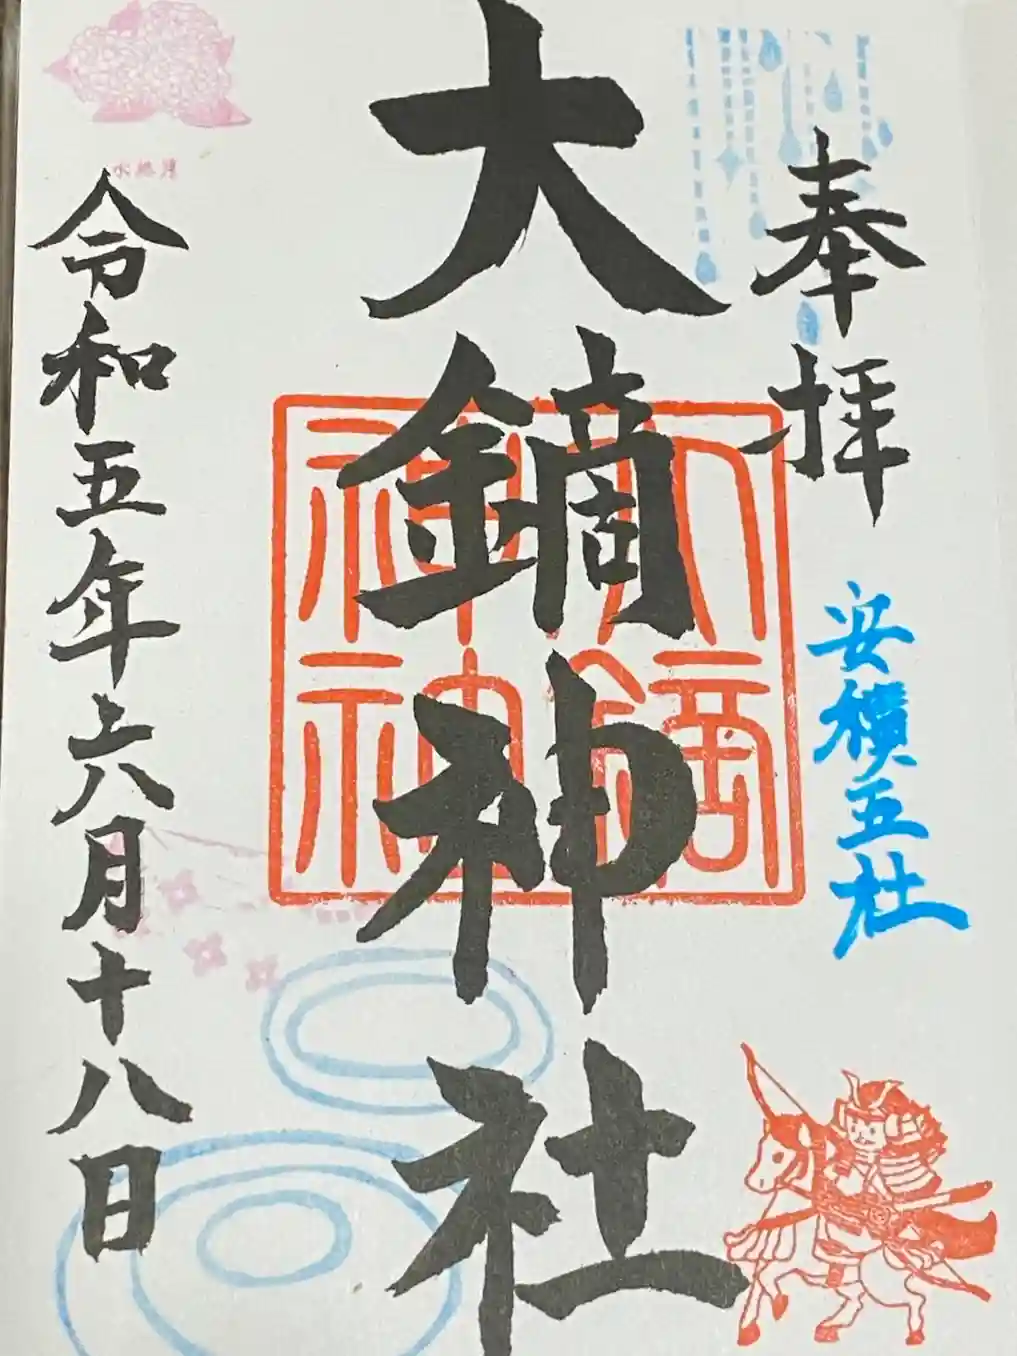 奉拝
安積五社
大鏑神社
大鏑
神社
令和五年六月十八日
水無月